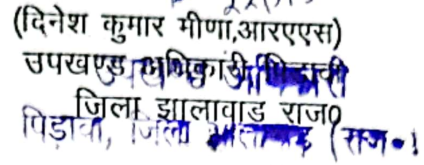 (दिनेश कुमार मीणा,आरएएस)
उपखण्ड अधिकारी पिडावा
जिला झालावाड राज०
पिड़ावा, जिला (राज०)